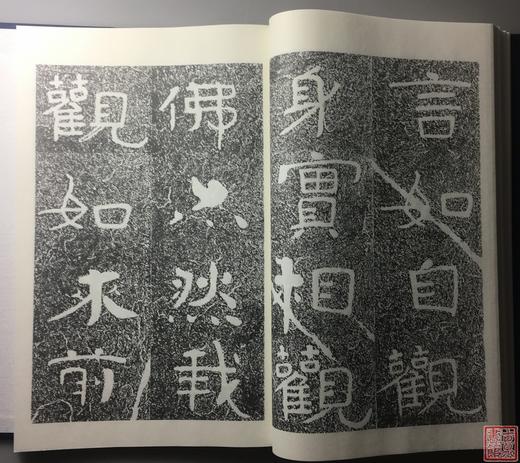 言如自觀
身實相觀
佛亦然我
觀如來前